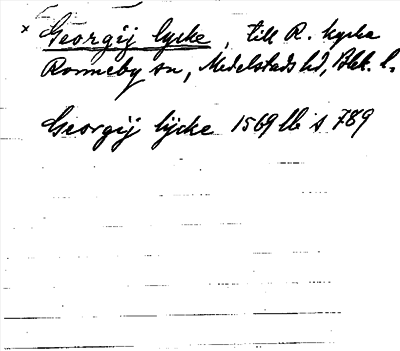 × Georgij lycke, till R. kyrka
Ronneby sn, Medelstads hd, Blek. l.
Georgij lÿcke 1569 lb s 789